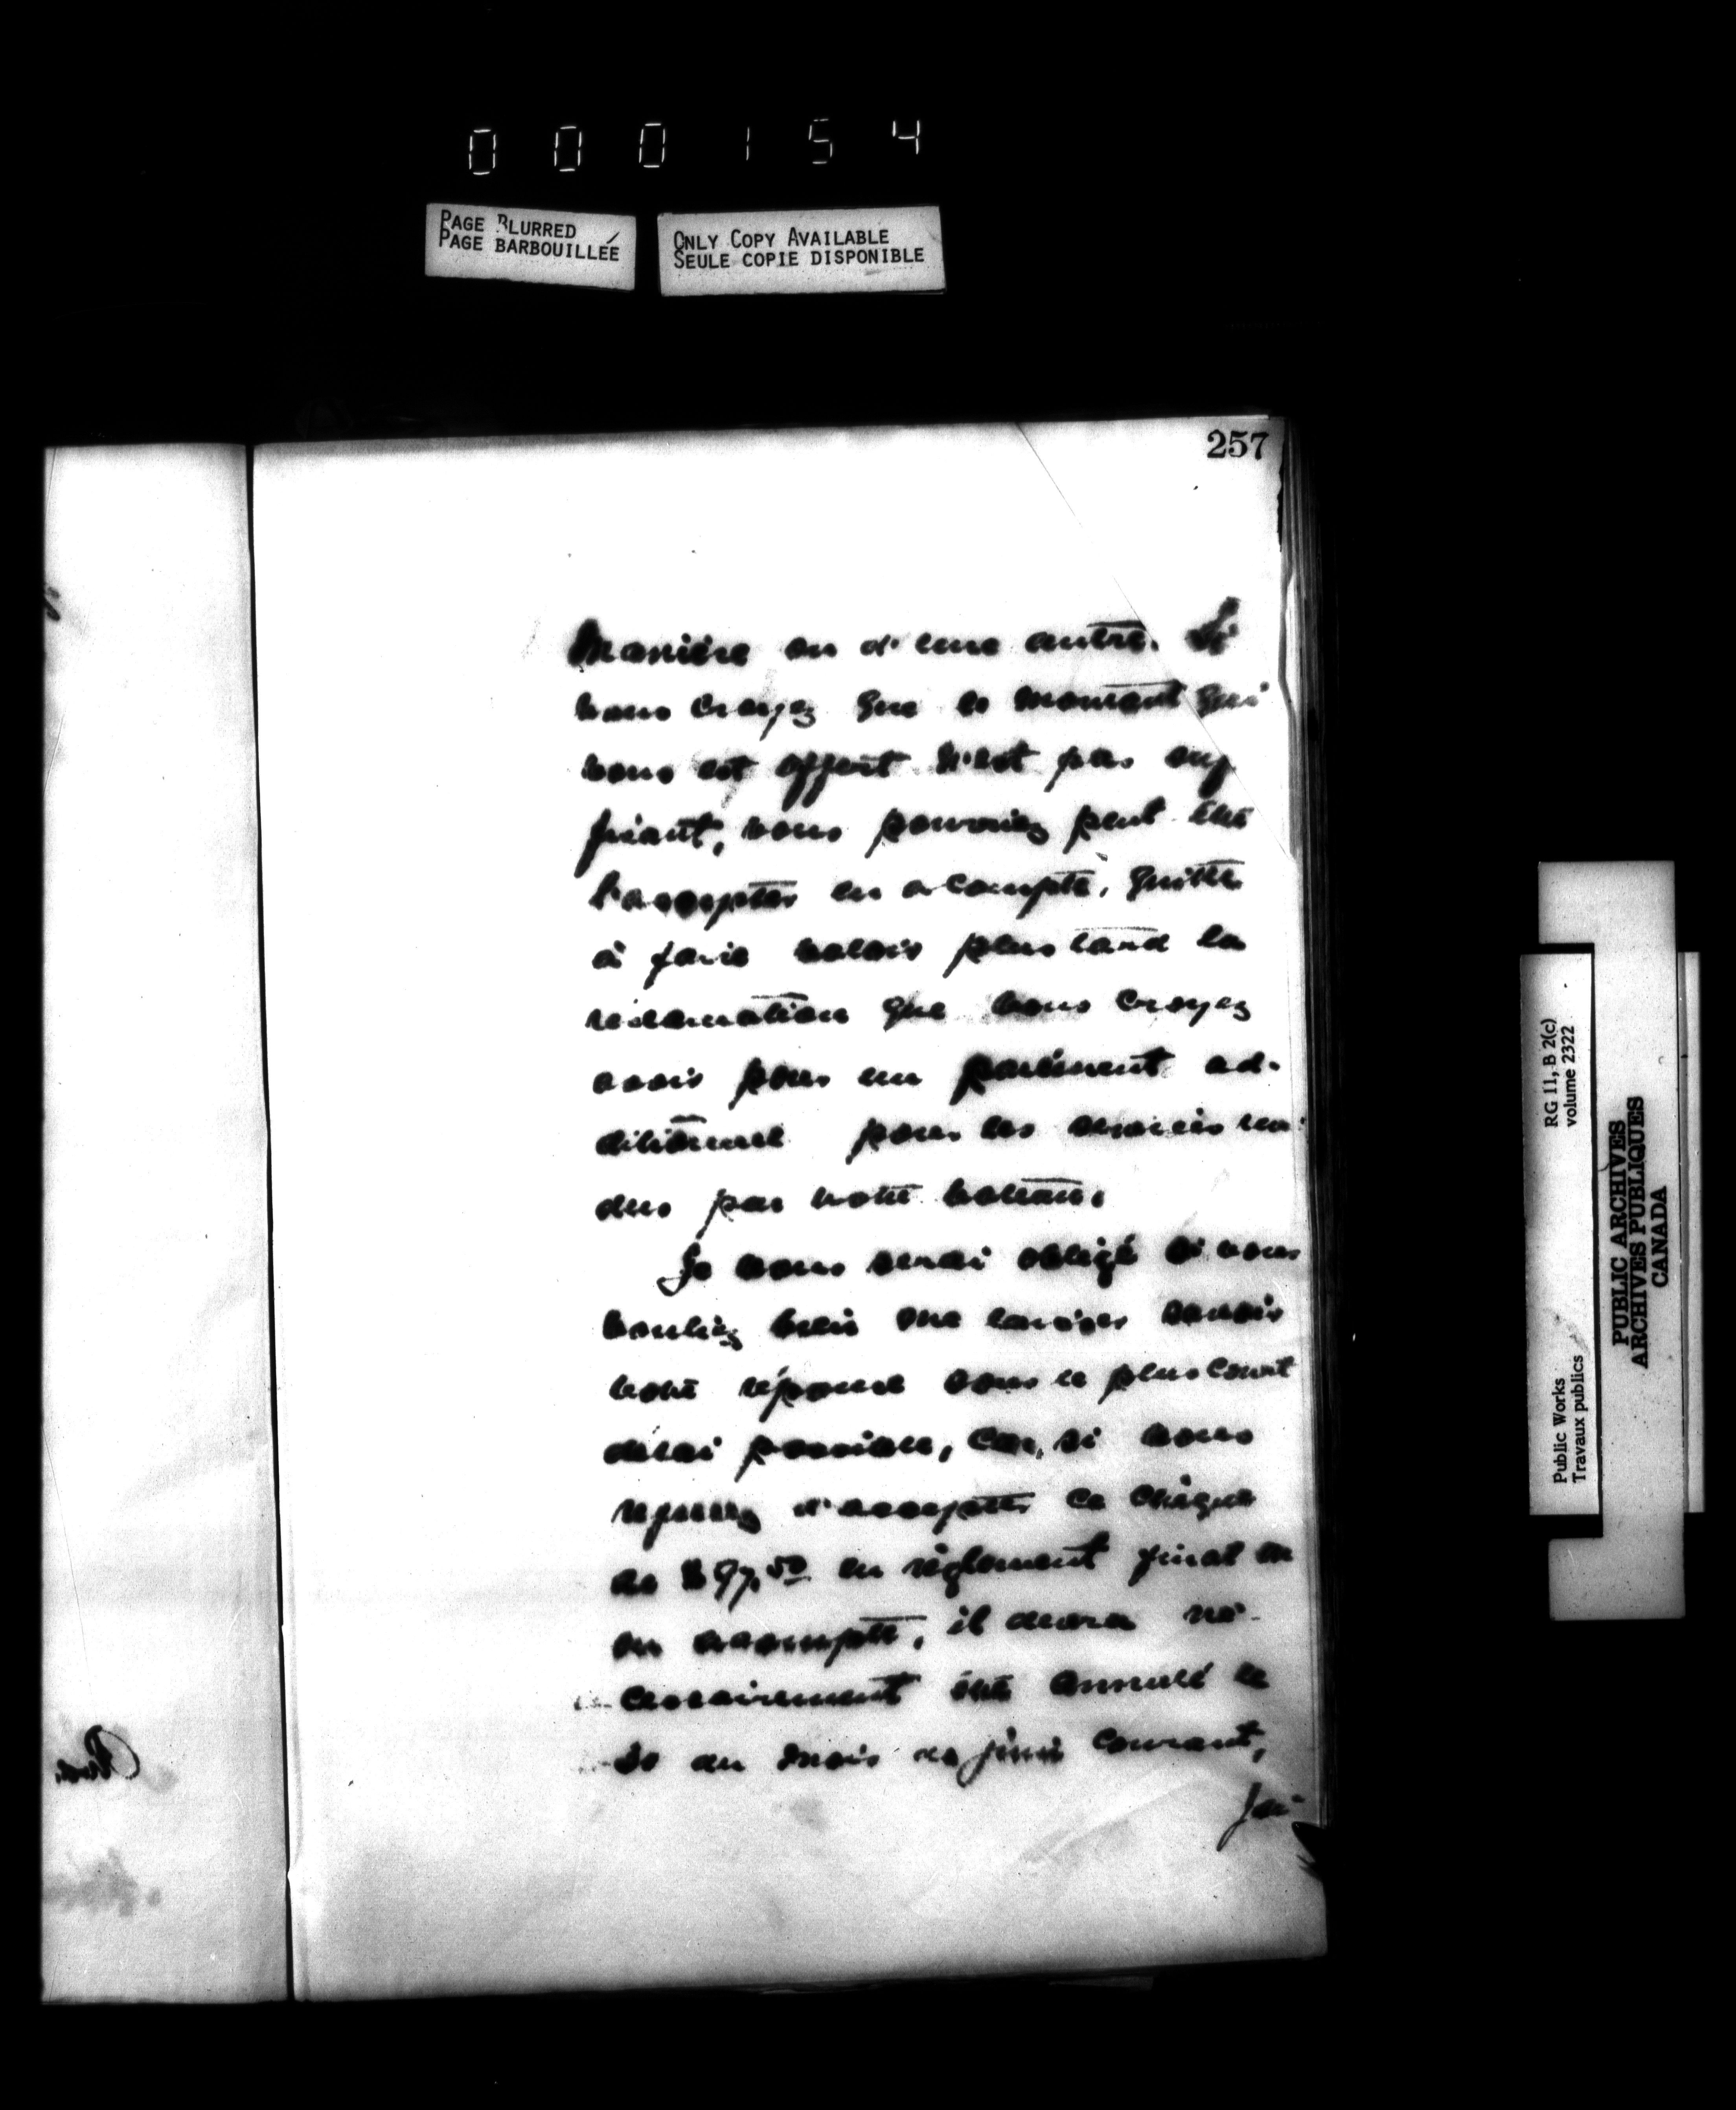 000154
PAGE BLURRED
PAGE BARBOUILLÉE
ONLY COPY AVAILABLE
SEULE COPIE DISPONIBLE
257
manière ou d'une autre. Si
vous croyez que le montant qui
vous est offert n'est pas suf
fisant, vous pourriez peut être
l'accepter en acompte, quitte
à faire valoir plus tard la
réclamation que vous croyez
avoir pour un paiement ad-
ditionnel pour les services ren-
dus par votre bateau.
Je vous serai obligé si vous
vouliez bien me laisser savoir
votre réponse dans le plus court
délai possible, car, si vous
refusez d'accepter ce chèque
de $97.50 en règlement final ou
en acompte, il devra né-
cessairement être annulé le
30 du mois de juin courant,
RG 11, B 2(c)
volume 2322
Public Works
Travaux publics
PUBLIC ARCHIVES
ARCHIVES PUBLIQUES
CANADA